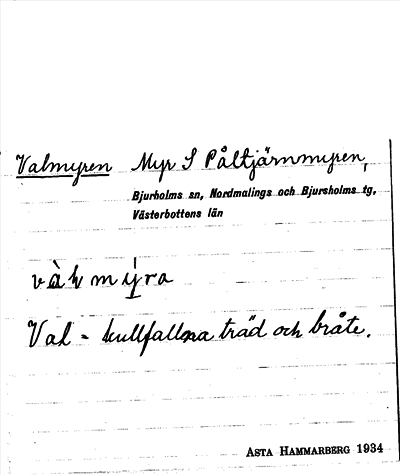 Valmyren Myr S Påltjärnmyren,
Bjurholms sn, Nordmalings och Bjursholms tg,
Västerbottens län
Val = kullfallna träd och bråte.
ASTA HAMMARBERG 1934